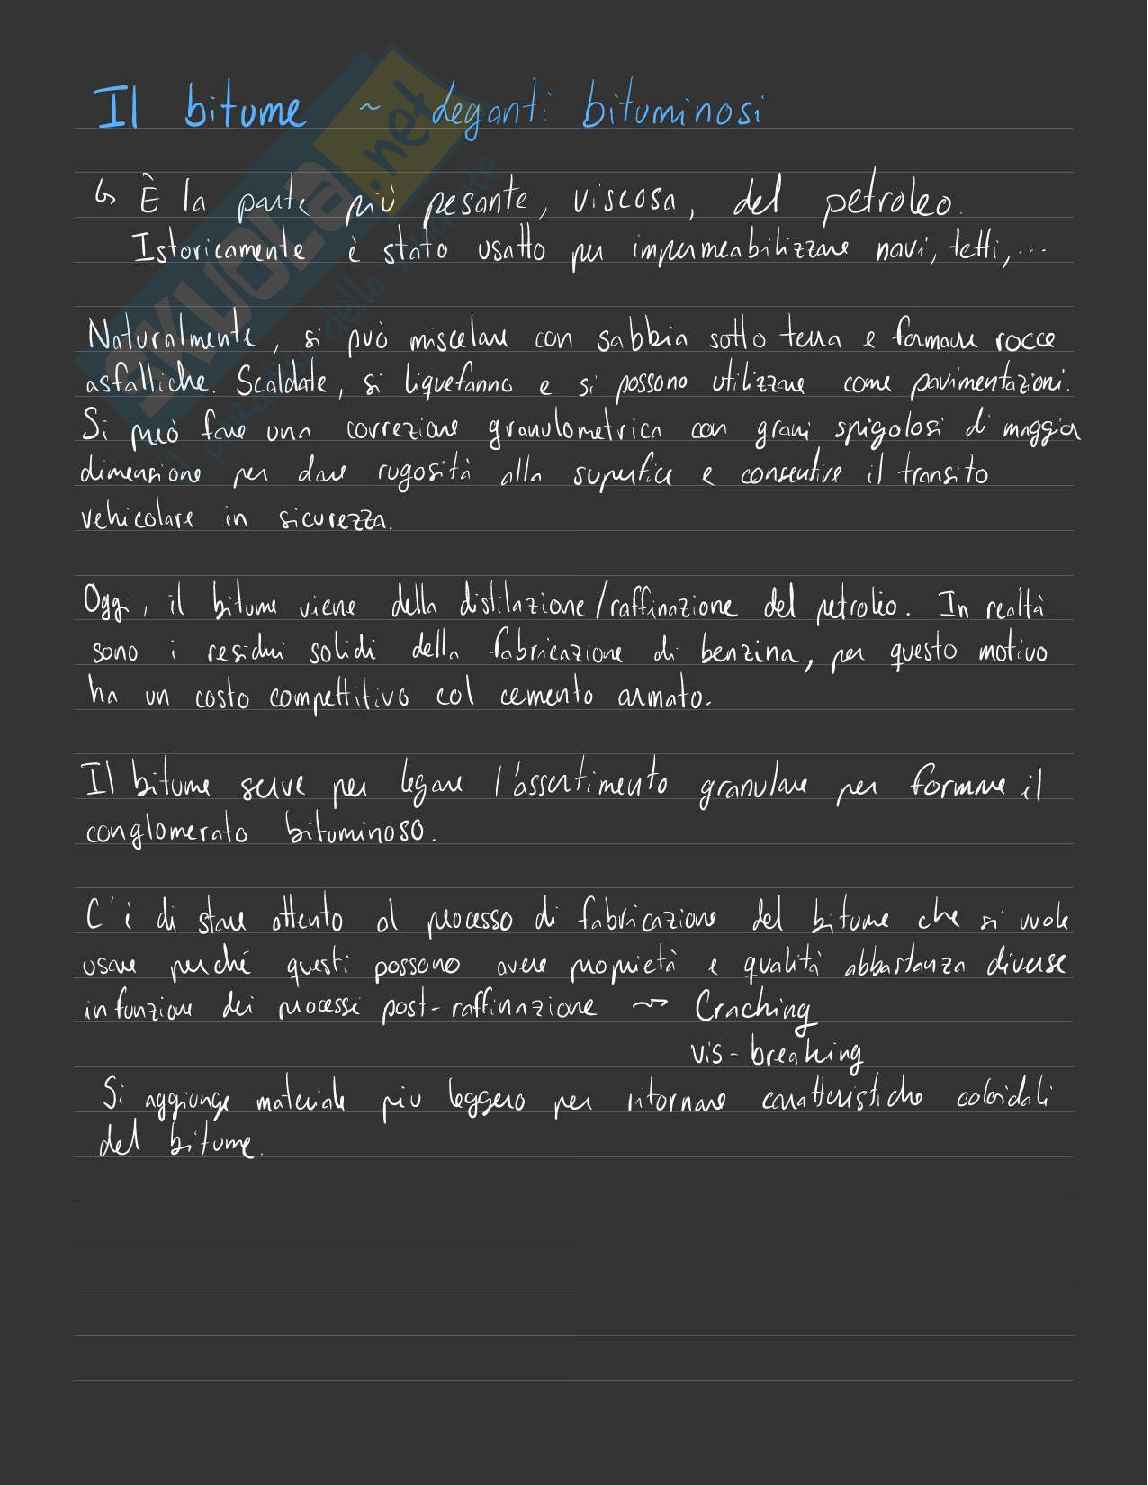 Il bitume ~ deganti bituminosi
↳ È la parte più pesante, viscosa, del petroleo.
Istoricamente è stato usatto per impermeabilizzare navi, tetti, ...
Naturalmente, si può miscelare con sabbia sotto terra e formare rocce
asfalliche. Scaldate, si liquefanno e si possono utilizzare come pavimentazioni.
Si può fare una correzione granulometrica con grani spigolosi di maggior
dimensione per dare rugosità alla superficie e consentire il transito
vehicolare in sicurezza.
Oggi, il bitume viene della distilazione/raffinazione del petroleo. In realtà
sono i residui solidi della fabricazione di benzina, per questo motivo
ha un costo compettitivo col cemento armato.
Il bitume serve per legare l'assortimento granulare per formare il
conglomerato bituminoso.
C'è di stare attento al processo di fabricazione del bitume che si vuole
usare perché questi possono avere proprietà e qualità abbastanza diverse
in funzione dei processi post-raffinazione ⇝ Craching
vis-breaking
Si aggiunge materiale più leggero per ritornare caratteristiche coloidali
del bitume.
SKUOLA.net